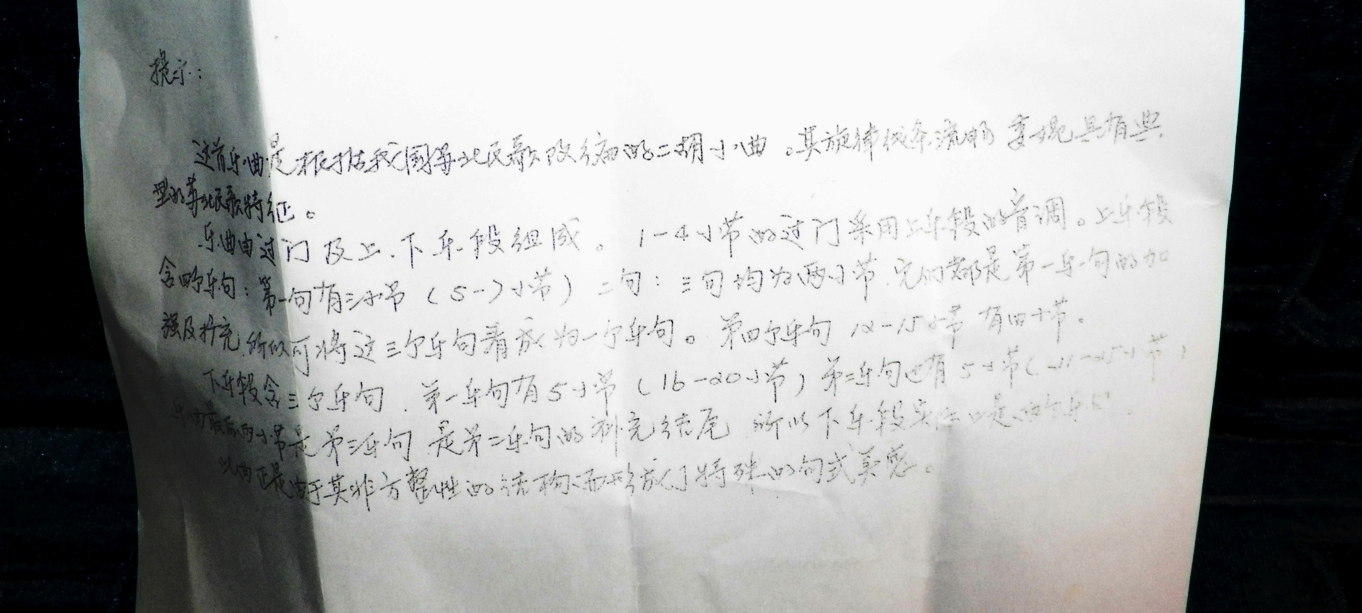 提示：
这首乐曲是根据我国苏北民歌改编的二胡小曲。其旋律线条流畅 委婉具有典
型的苏北民歌特征。
乐曲由过门及上.下乐段组成。1-4小节的过门采用上乐段的音调。上乐段
含四个乐句：第一句有三小节（5-7小节）二句：三句均为两小节.它们都是第一乐句的加
强及扩充.所以可将这三个乐句看成为一个乐句。第四个乐句 12-15小节 有四小节。
下乐段含三个乐句.第一乐句有5小节（16-20小节）第二乐句也有5小节（21-25小节）
乐曲最后两小节是第三乐句 是第二乐句的补充结尾 所以下乐段实际只是两个乐句.
正是由于其非方整性的结构而形成了特殊的句式美感。